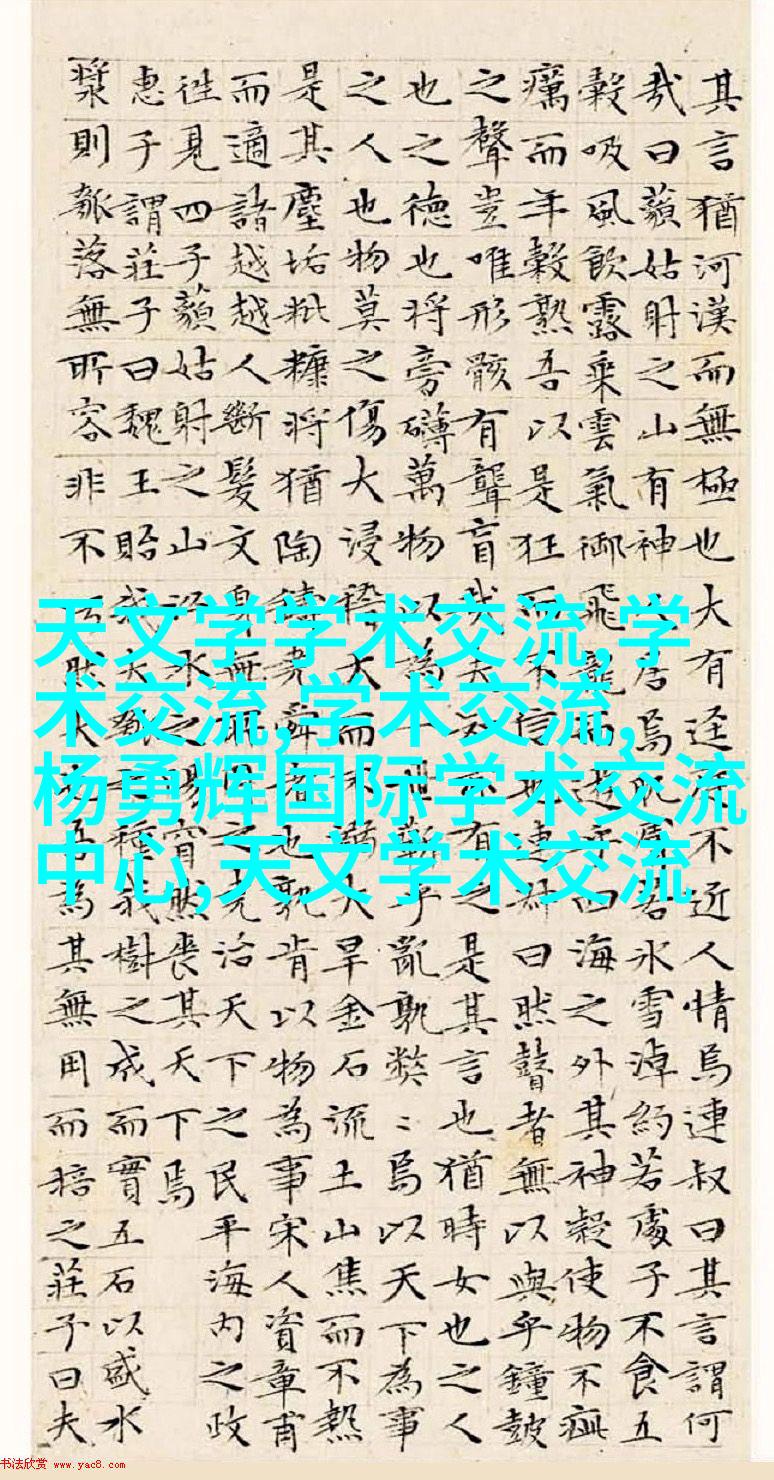 其言猶河漢而無極也大有逕不近人情焉連叔曰其言謂何
哉曰藐姑射之山有神居焉肌膚若冰雪淖約若處子不食五
穀吸風飲露乘雲氣御飛龍而遊乎四海之外其神凝使物不疵
癘而年穀熟吾以是狂而不信也連叔曰然瞽者無以與乎鐘鼓
之聲豈唯形骸有聾盲哉夫知有之是其言也猶時女也之人
也之德也將旁礴萬物以為一世蘄乎亂孰弊〻焉以天下為事
之人也物莫之傷大浸稽天而不溺大旱金石流土山焦而不熱
是其塵垢粃糠將猶陶鑄堯舜者也孰肯以物為事宋人資章甫
而適諸越越人斷髮文身無用之堯治天下之民平海內之政
往見四子藐姑射之山汾水之陽窅然喪其天下焉
惠子謂莊子曰魏王貽我大瓠之種我樹之成而實五石以盛水
漿則瓠落無所容非不然大吾為其無用而掊之莊子曰夫
天文学学术交流,学
术交流,学术交流,
杨勇辉国际学术交流
中心,天文学术交流
书法欣赏 www.yac8.com